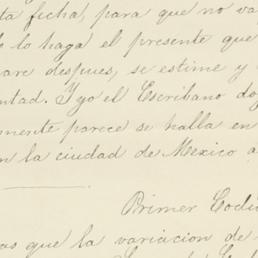 ta ficha, para que no va
e lo haga el presente que
are despues, se estime y
ntad. Y yo el Escribano do
mente parece se halla en
n la ciudad de Mexico a
Primer Codi
as que la variacion de